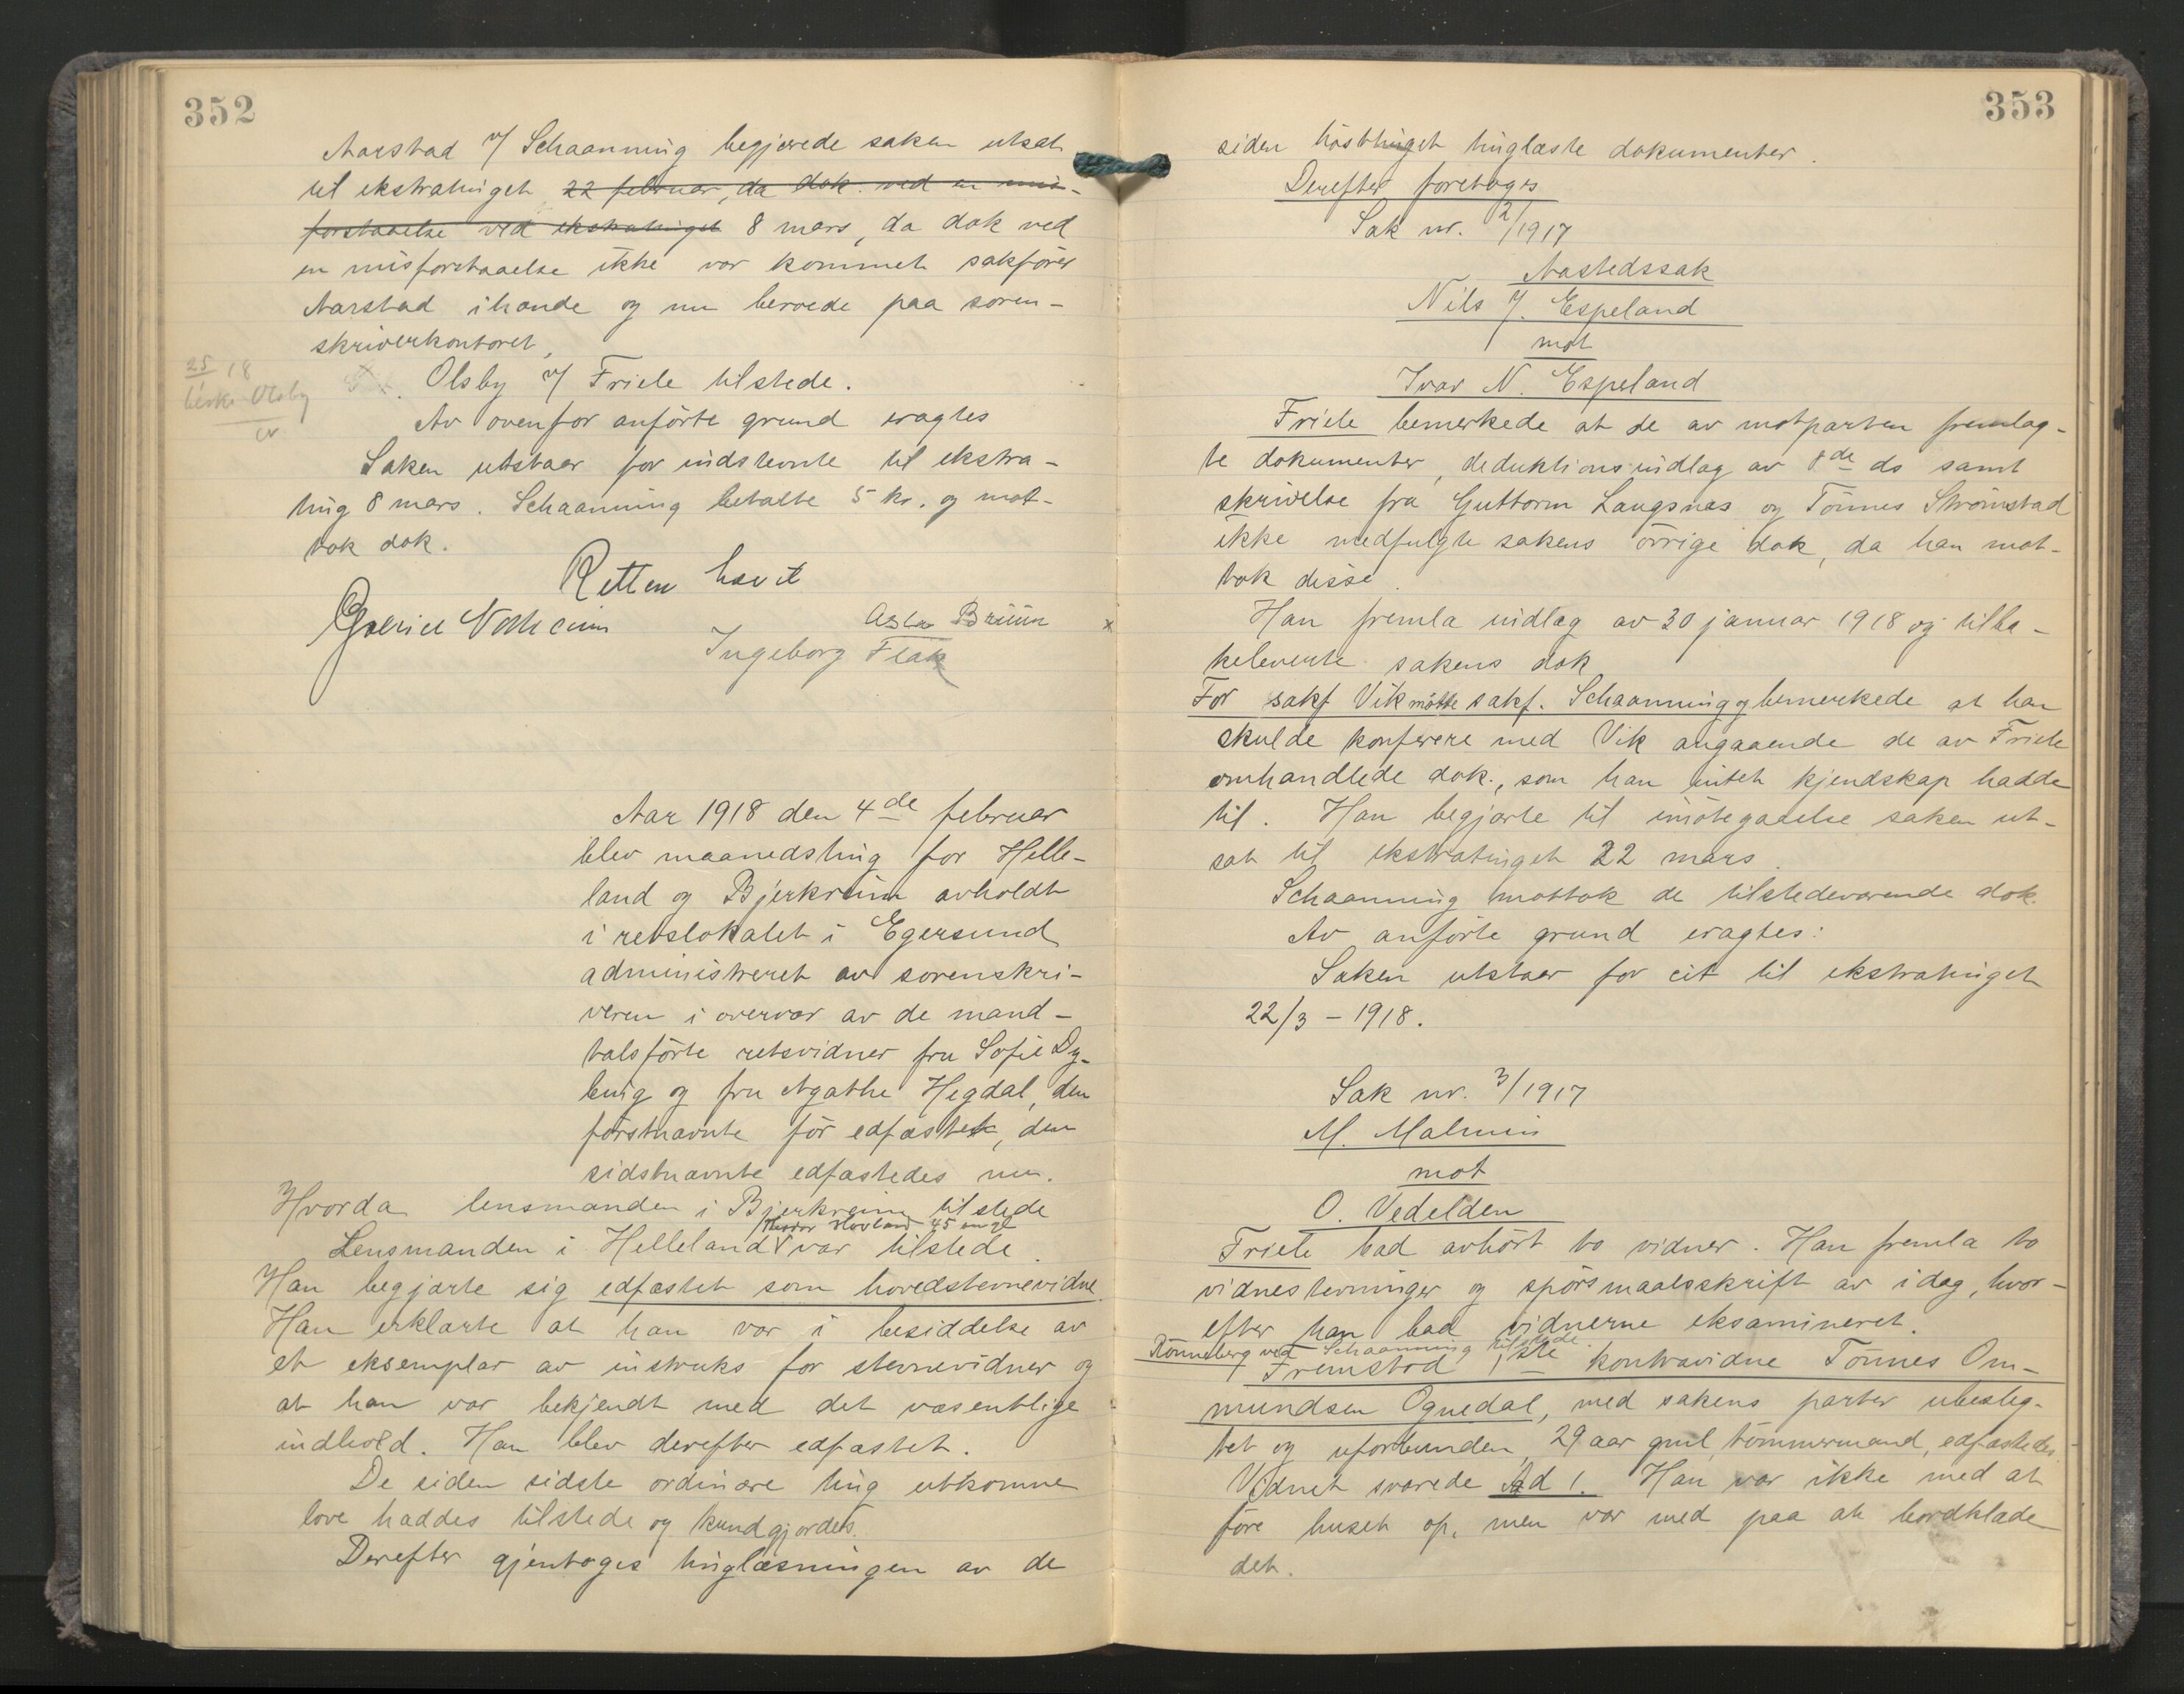 352
Aarstad v/ Schaanning begjærede saken utsat
til ekstratinget 22 februar, da dok. ved en mis-
forstaaelse ved ekstratinget 8 mars, da dok ved
en misforstaaelse ikke var kommet sakfører
Aarstad ihænde og nu beroede paa soren-
skriverkontoret,
25 18
Olsby
Olsby v/ Friele tilstede.
Av ovenfor anførte grund eragtes
Saken utstaar for indstevnte til ekstra-
ting 8 mars. Schaanning betalte 5 kr. og mot-
tok dok.
Retten hævet
Asta Brüün
Ingeborg Flak
Aar 1918 den 4de februar
blev maanedsting for Helle-
land og Bjerkreim avholdt
i retslokalet i Egersund
administreret av sorenskri-
veren i overvær av de mand-
talsførte retsvidner fru Sofie Dy-
bing og fru Agathe Hegdal, den
førstnævnte før edfæstet, den
sidstnævnte edfæstedes nu.
Hvorda lensmanden i Bjerkreim tilstede
Hovland 45 aar gl
Lensmanden i Helleland var tilstede.
Han begjærte sig edfæstet som hovedstevnevidne.
Han erklærte at han var i besiddelse av
et eksemplar av instruks for stevnevidner og
at han var bekjendt med det væsentlige
indhold. Han blev derefter edfæstet.
De siden sidste ordinære ting utkomne
love haddes tilstede og kundgjordes.
Derefter gjentoges tinglæsningen av de
353
siden høsttinget tinglæste dokumenter.
Derefter foretoges
Sak nr. 2/1917
Aastedssak
Nils J. Espeland
mot
Ivar N. Espeland
Friele bemerkede at de av motparten fremlag-
te dokumenter, deduktionsindlæg av 8de ds samt
skrivelse fra Guttorm Langsnæs og Tönnes Strömstad
ikke medfulgte sakens övrige dok, da han mot-
tok disse.
Han fremla indlæg av 30 januar 1918 og tilba-
keleverte sakens dok
For sakf Vik møtte sakf. Schaanning og bemerkede at han
skulde konferere med Vik angaaende de av Friele
omhandlede dok., som han intet kjendskap hadde
til. Han begjærte til imötegaaelse saken ut-
sat til ekstratinget 22 mars.
Schaanning mottok de tilstedeværende dok.
Av anførte grund eragtes:
Saken utstaar for cit til ekstratinget
22/3 - 1918.
Sak nr. 3/1917
M. Malmin
mot
O. Vedelden
Friele bad avhørt to vidner. Han fremla to
vidnestevninger og spörsmaalsskrift av idag, hvor-
efter han bad vidnerne eksamineret.
Rönneberg ved Schaanning tilstede.
Fremstod 1ste kontravidne Tönnes Om-
mundsen Ognedal, med sakens parter ubeslég-
tet og uforbunden, 29 aar gml, tömmermand, edfæstedes.
Vidnet svarede Ad 1. Han var ikke med at
føre huset op, men var med paa at bordklæde
det.